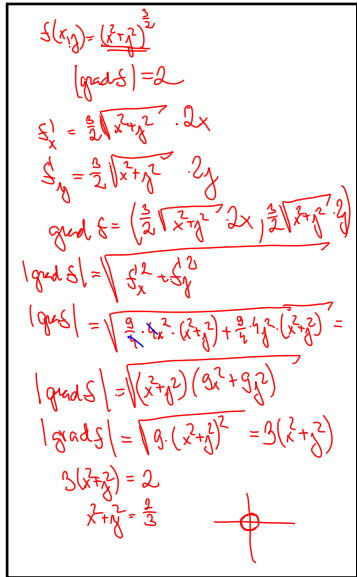 f(x,y)=(x²+y²)^(3/2)
|grad f|=2
f'ₓ = 3/2 √(x²+y²) · 2x
f'ᵧ = 3/2 √(x²+y²) · 2y
grad f = (3/2 √(x²+y²) · 2x, 3/2 √(x²+y²) · 2y)
|grad f| = √(f'ₓ² + f'ᵧ²)
|grad f| = √(9/4 · 4x² · (x²+y²) + 9/4 · 4y² · (x²+y²)) =
|grad f| = √((x²+y²)(9x²+9y²))
|grad f| = √(9·(x²+y²)²) = 3(x²+y²)
3(x²+y²) = 2
x²+y² = 2/3